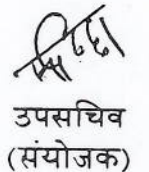 उपसचिव
(संयोजक)